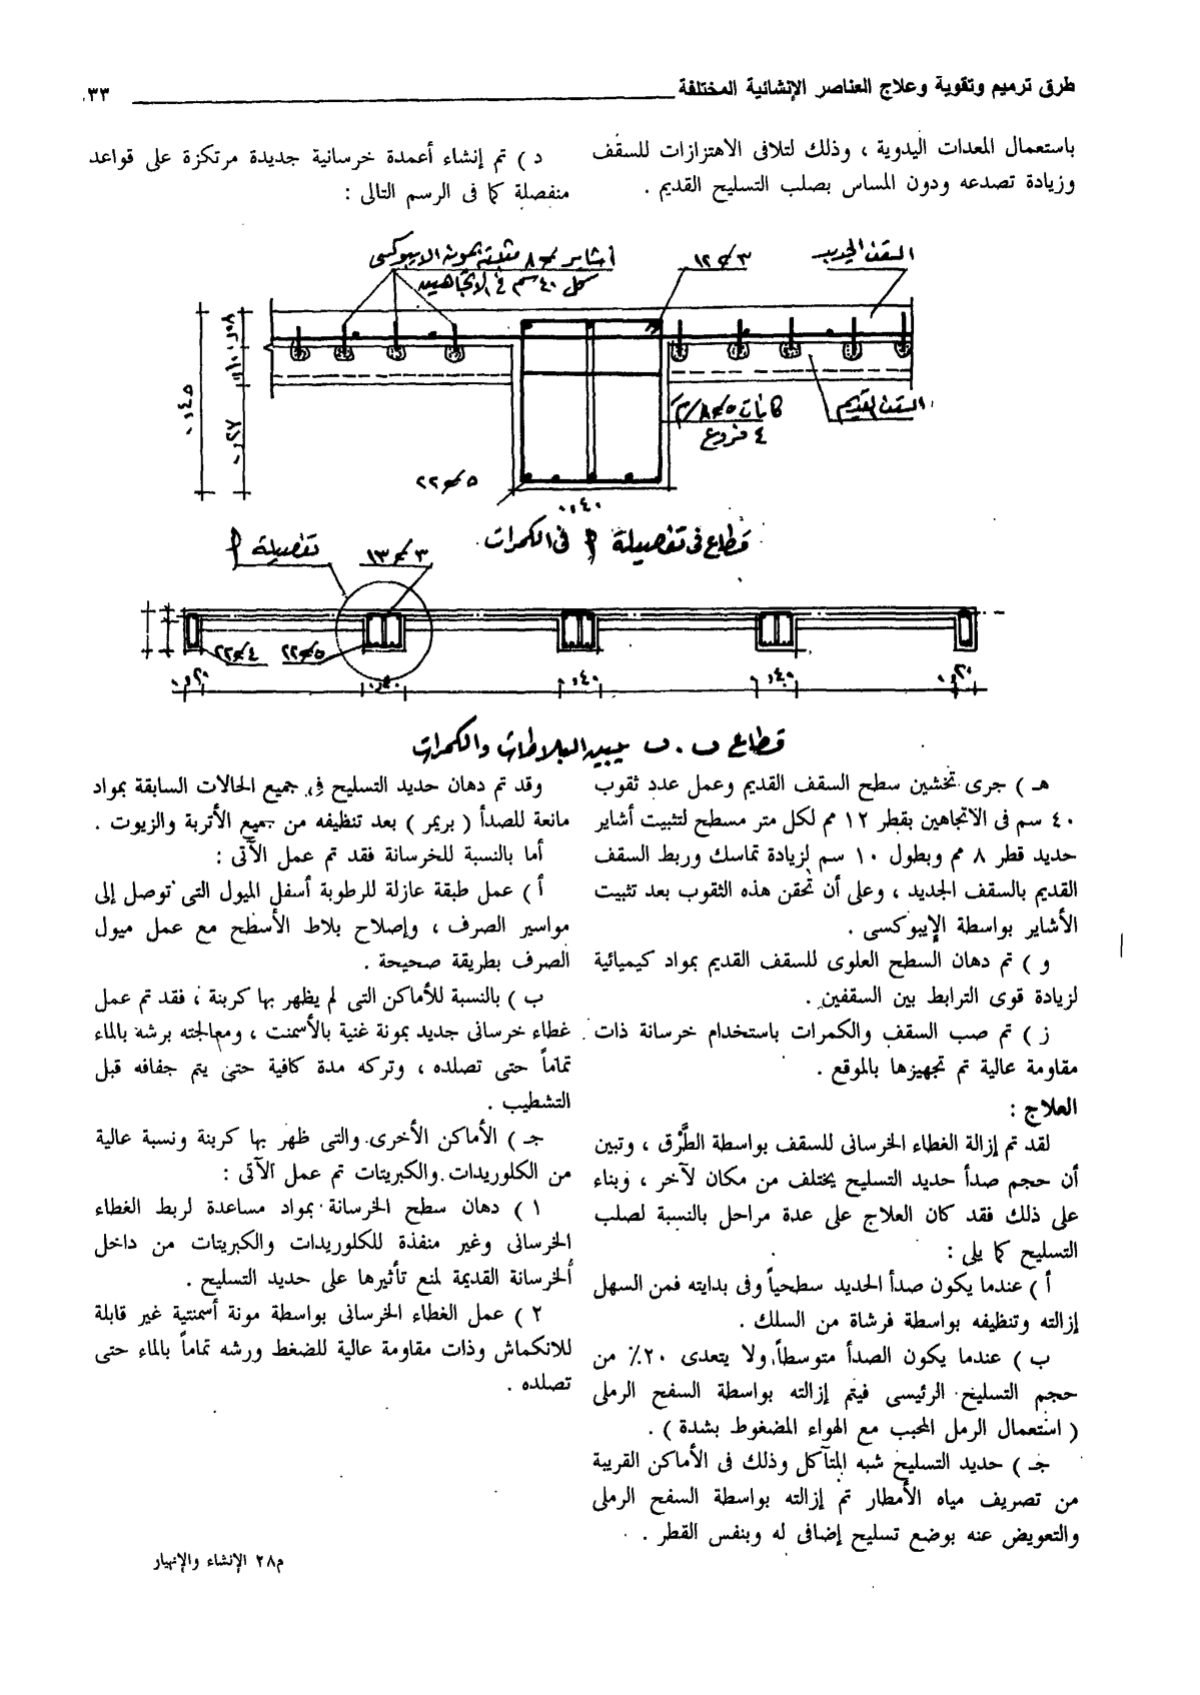 طرق ترميم وتقوية وعلاج العناصر الإنشائية المختلفة
٣٣
باستعمال المعدات اليدوية ، وذلك لتلافى الاهتزازات للسقف
وزيادة تصدعه ودون المساس بصلب التسليح القديم .
د ) تم إنشاء أعمدة خرسانية جديدة مرتكزة على قواعد
منفصلة كما فى الرسم التالى :
السقف الجديد
٣ ⌀ ١٢
أشاير ⌀ ٨ مثبتة بمونة الايبوكسى
كل ٤٠ سم فى الاتجاهين
٠,٠٨
٠,١٠
٠,٢٧
٠,٤٥
السقف القديم
كانات ٥ ⌀ ٨ / م
٤ فروع
٥ ⌀ ٢٢
٠,٤٠
قطاع فى تفصيلة أ فى الكمرات
تفصيلة أ
٣ ⌀ ١٣
٤ ⌀ ٢٢
٥ ⌀ ٢٢
٠,٢٠
٠,٤٠
٠,٤٠
٠,٤٠
٠,٢٠
قطاع ب . ب يبين البلاطات والكمرات
هـ ) جرى تخشين سطح السقف القديم وعمل عدد ثقوب
٤٠ سم فى الاتجاهين بقطر ١٢ مم لكل متر مسطح لتثبيت أشاير
حديد قطر ٨ مم وبطول ١٠ سم لزيادة تماسك وربط السقف
القديم بالسقف الجديد ، وعلى أن تحقن هذه الثقوب بعد تثبيت
الأشاير بواسطة الإيبوكسى .
و ) تم دهان السطح العلوى للسقف القديم بمواد كيميائية
لزيادة قوى الترابط بين السقفين .
ز ) تم صب السقف والكمرات باستخدام خرسانة ذات
مقاومة عالية تم تجهيزها بالموقع .
العلاج :
لقد تم إزالة الغطاء الخرسانى للسقف بواسطة الطَّرْق ، وتبين
أن حجم صدأ حديد التسليح يختلف من مكان لآخر ، وبناء
على ذلك فقد كان العلاج على عدة مراحل بالنسبة لصلب
التسليح كما يلى :
أ ) عندما يكون صدأ الحديد سطحياً وفى بدايته فمن السهل
إزالته وتنظيفه بواسطة فرشاة من السلك .
ب ) عندما يكون الصدأ متوسطاً ولا يتعدى ٢٠٪ من
حجم التسليح الرئيسى فيتم إزالته بواسطة السفح الرملى
( استعمال الرمل المحبب مع الهواء المضغوط بشدة ) .
جـ ) حديد التسليح شبه المتآكل وذلك فى الأماكن القريبة
من تصريف مياه الأمطار تم إزالته بواسطة السفح الرملى
والتعويض عنه بوضع تسليح إضافى له وبنفس القطر .
وقد تم دهان حديد التسليح فى جميع الحالات السابقة بمواد
مانعة للصدأ ( بريمر ) بعد تنظيفه من جميع الأتربة والزيوت .
أما بالنسبة للخرسانة فقد تم عمل الآتى :
أ ) عمل طبقة عازلة للرطوبة أسفل الميول التى توصل إلى
مواسير الصرف ، وإصلاح بلاط الأسطح مع عمل ميول
الصرف بطريقة صحيحة .
ب ) بالنسبة للأماكن التى لم يظهر بها كربنة ، فقد تم عمل
غطاء خرسانى جديد بمونة غنية بالأسمنت ، ومعالجته برشه بالماء
تماماً حتى تصلده ، وتركه مدة كافية حتى يتم جفافه قبل
التشطيب .
جـ ) الأماكن الأخرى والتى ظهر بها كربنة ونسبة عالية
من الكلوريدات والكبريتات تم عمل الآتى :
١ ) دهان سطح الخرسانة بمواد مساعدة لربط الغطاء
الخرسانى وغير منفذة للكلوريدات والكبريتات من داخل
الخرسانة القديمة لمنع تأثيرها على حديد التسليح .
٢ ) عمل الغطاء الخرسانى بواسطة مونة أسمنتية غير قابلة
للانكماش وذات مقاومة عالية للضغط ورشه تماماً بالماء حتى
تصلده .
م٢٨ الإنشاء والإنهيار